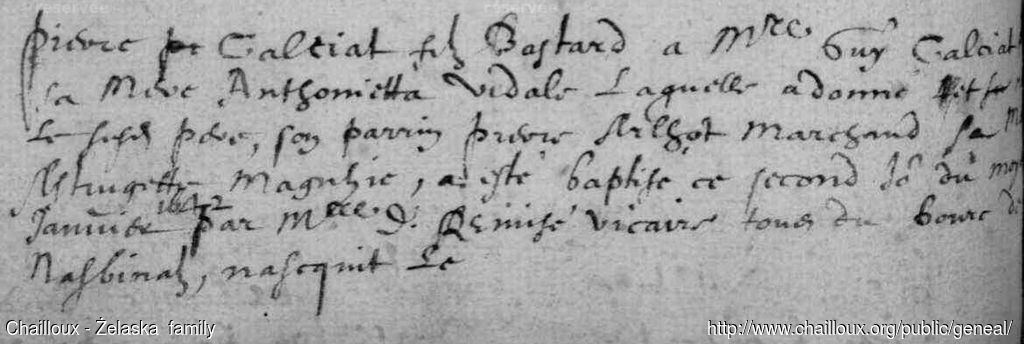 Pierre Galciat filz Bastard a Mre. Guy Galciat
sa Mere Anthonietta Vidale Laquelle a donné
Le susd pere, son parrin pierre Marchand sa
Astrugette Magnhie, a esté baptisé ce second Jo du mois
Janvier 1642 par Mre. D. Remise vicaire tous du bourc de
Nasbinalz, nascquit Le
Chailloux - Żelaska family
http://www.chailloux.org/public/geneal/